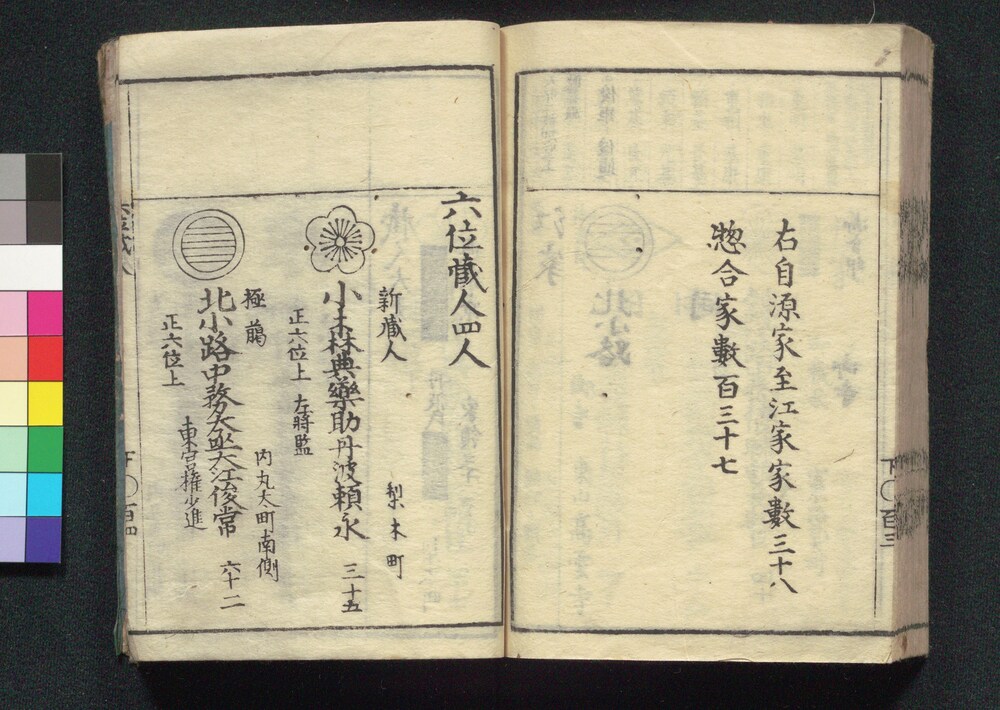 右自源家至江家家數三十八
惣合家數百三十七
下〇百三
六位蔵人四人
新蔵人
梨木町
小森典藥助丹波頼永
三十五
正六位上
左將監
極﨟
内丸太町南側
北小路中務大丞大江俊常
六十二
正六位上
東宮権少進
六位蔵人
下〇百四